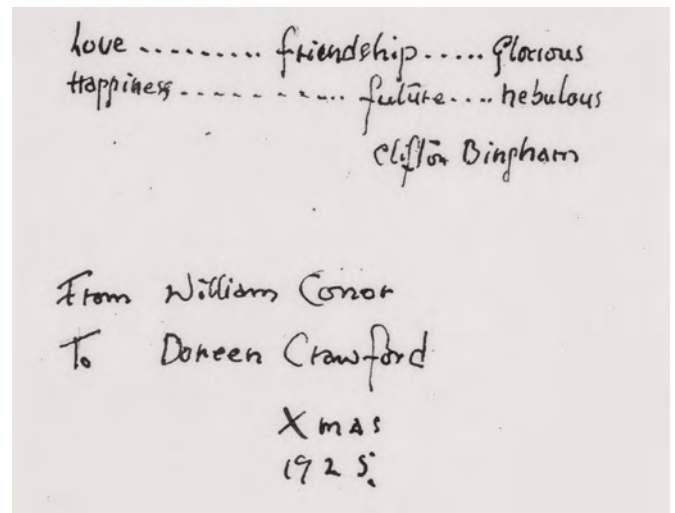 Love ......... friendship ..... Glorious
Happiness ........... future .... nebulous
Clifton Bingham
From William Conor
To Doreen Crawford
Xmas
1925.